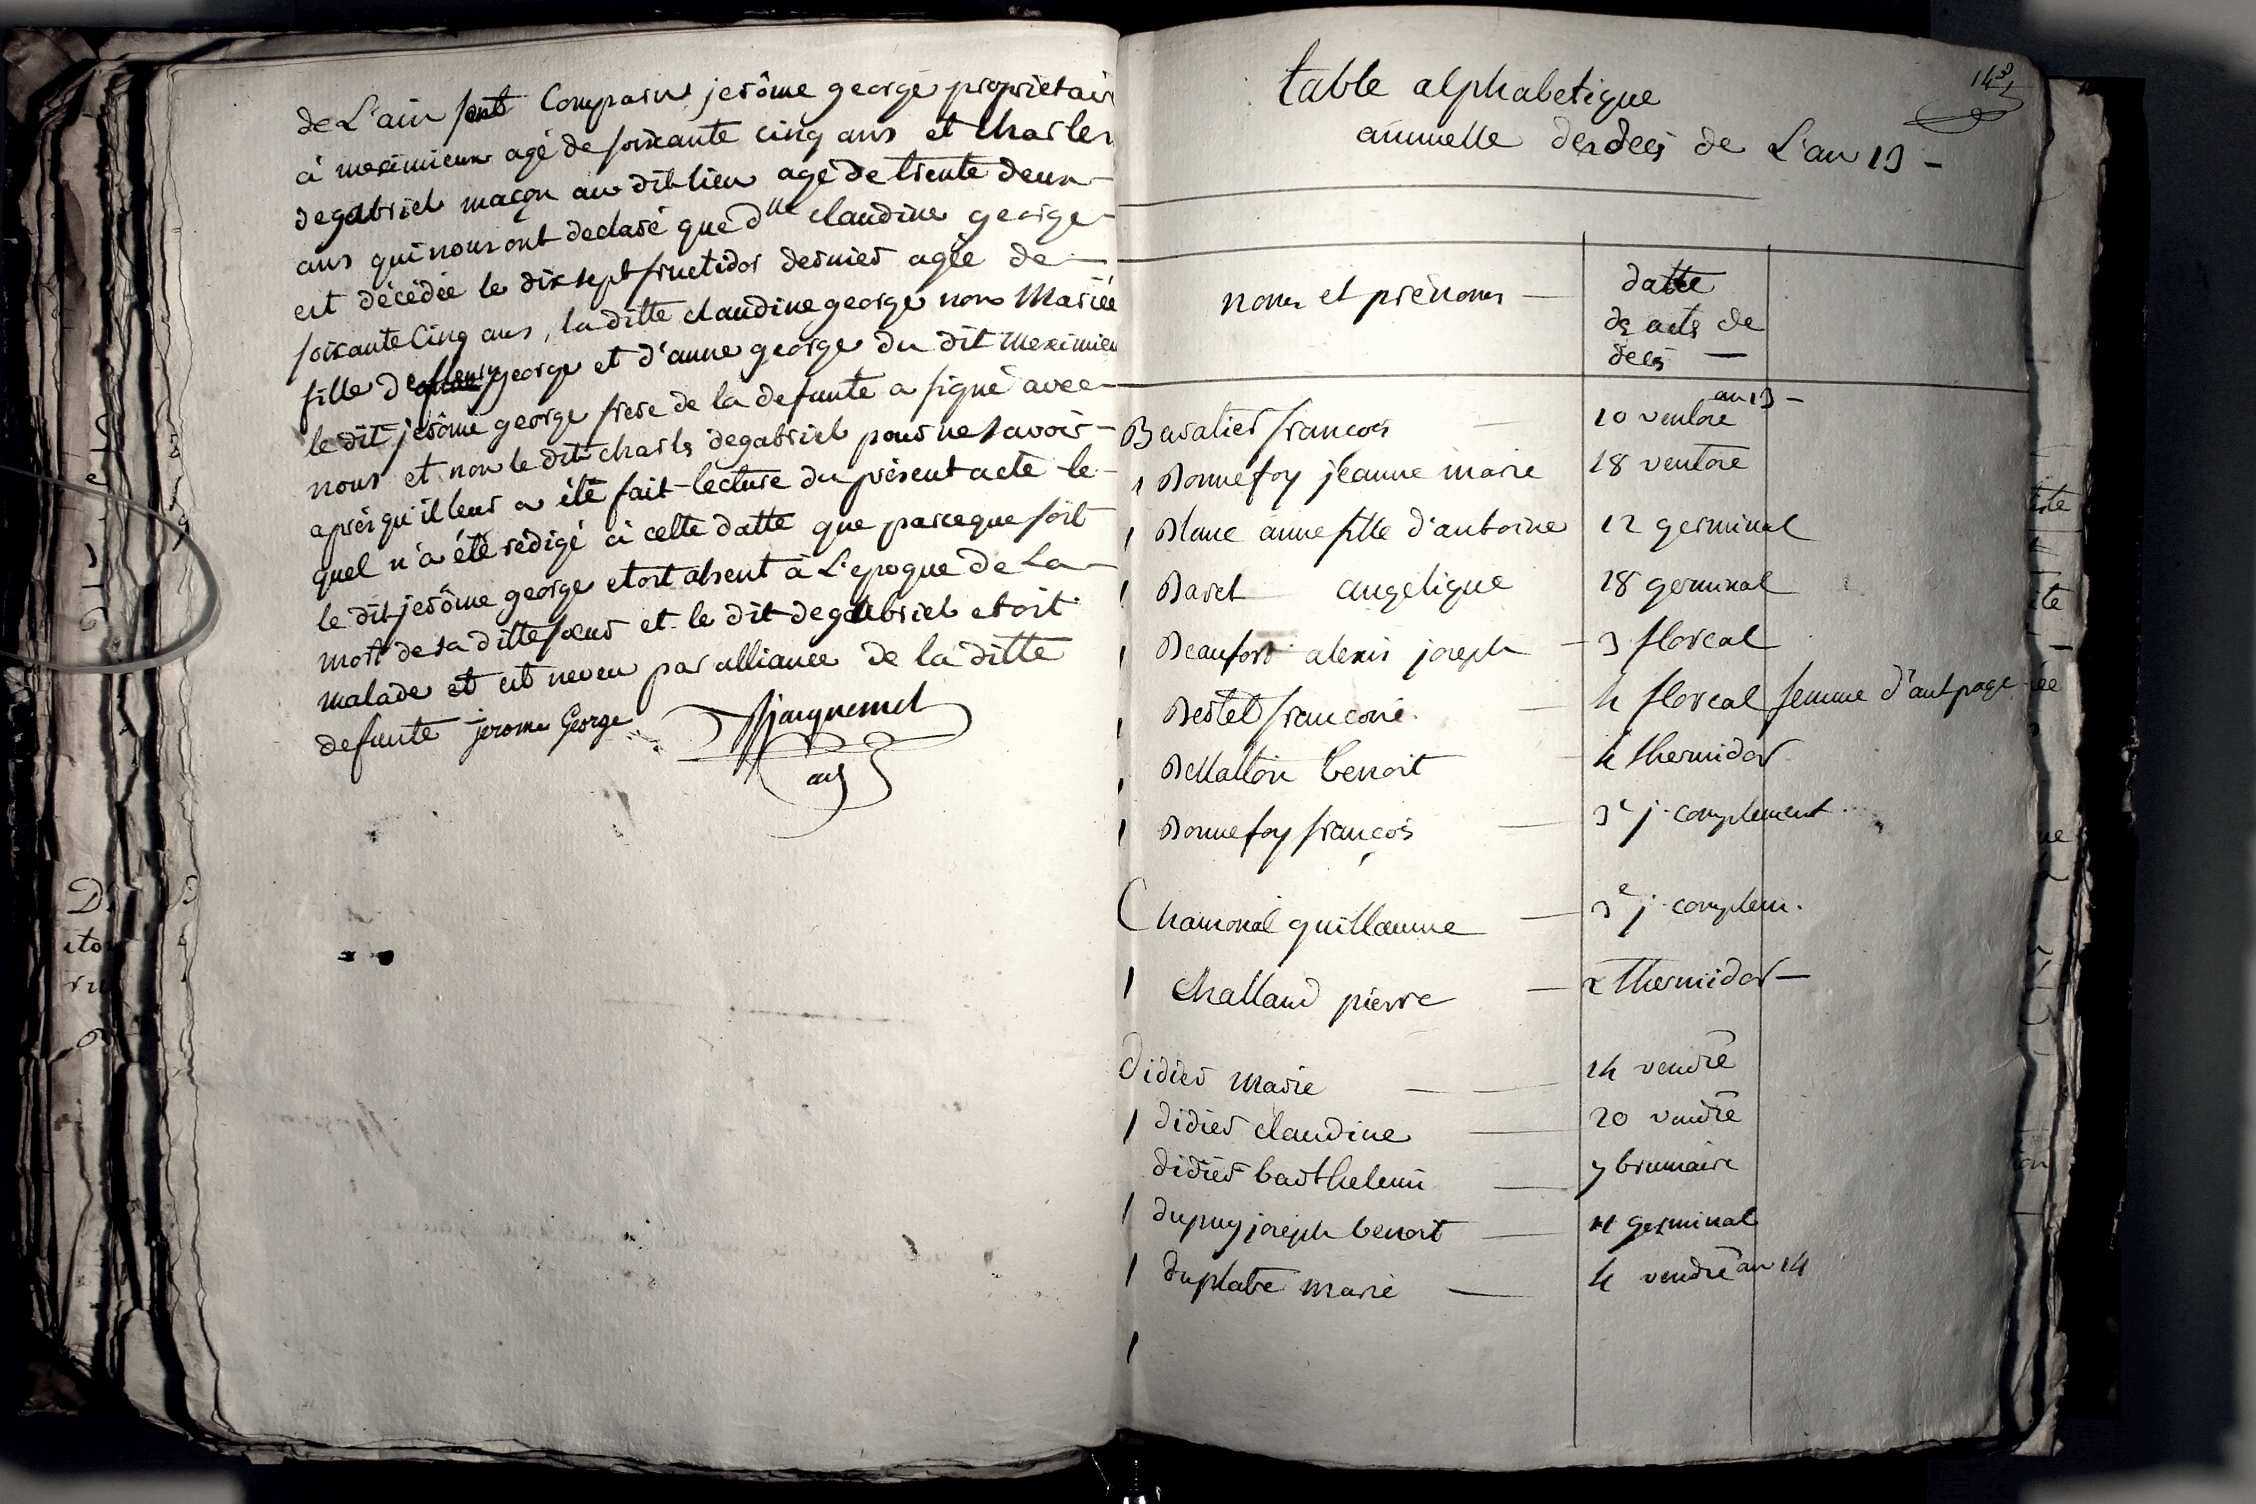 de L'ain sont Comparus jerôme george propriétair
à meximieux agé de soixante cinq ans et charles
degabriel maçon au dit lieu agé de trente deux
ans qui nous ont declaré que dlle claudine george
est décédée le dix sept fructidor dernier agée de
soixante Cinq ans, la ditte claudine george non Mariée
fille de george et d'anne george du dit Meximieu
le dit jerôme george frere de la defunte a signé avec
nous et non le dit charls degabriel pour ne savoir
après qu'il leur a été fait lecture du présent acte le
quel n'a été rédigé à cette datte que parceque soit
le dit jerôme george etoit absent à L'epoque de La
mort de sa ditte sœur et le dit degabriel etoit
malade et est neveu par alliance de la ditte
defunte jerome George Jacquemet
adj
143
table alphabetique
annuelle des decés de L'an 13 -
noms et prénoms — datte
de acte de
decés —
an 13 -
Bavalier francois — 10 ventose
Bonnefoy jeanne marie 18 ventose
Blanc anne fille d'antoine 12 germinal
Baret angelique 28 germinal
Beaufort alexis joseph — 3 floreal
Bertet francoise — 4 floreal femme d'ant page
Bellaton benoit — 4 thermidor
Bonnefoy françois — 3e j. complement.
Chamonal guillaume — 3e j. complem.
Challand pierre — 2 Thermidor —
Didier Marie — 14 vendre
didier claudine — 20 vendre
didier barthelemi — 7 brumaire
dupuy joseph benoit — 11 germinal
duplatre Marie — 4 vendre an 14